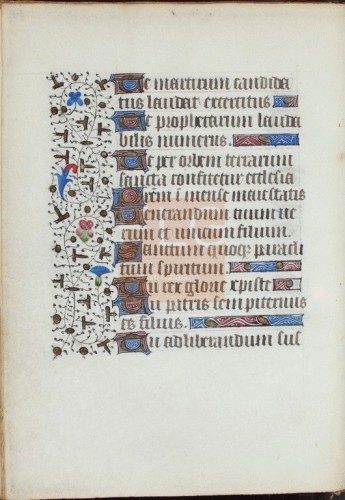 Te martirum candida
tus laudat exercitus
Te prophetarum lauda
bilis numerus.
Te per orbem terrarum
sancta confitetur ecclesia
Patrem inmense maiestatis
Venerandum tuum ve
rum et unicum filium.
Sanctum quoque paracli
tum spiritum
Tu rex glorie xpiste
Tu patris sempiternus
es filius.
Tu ad liberandum sus